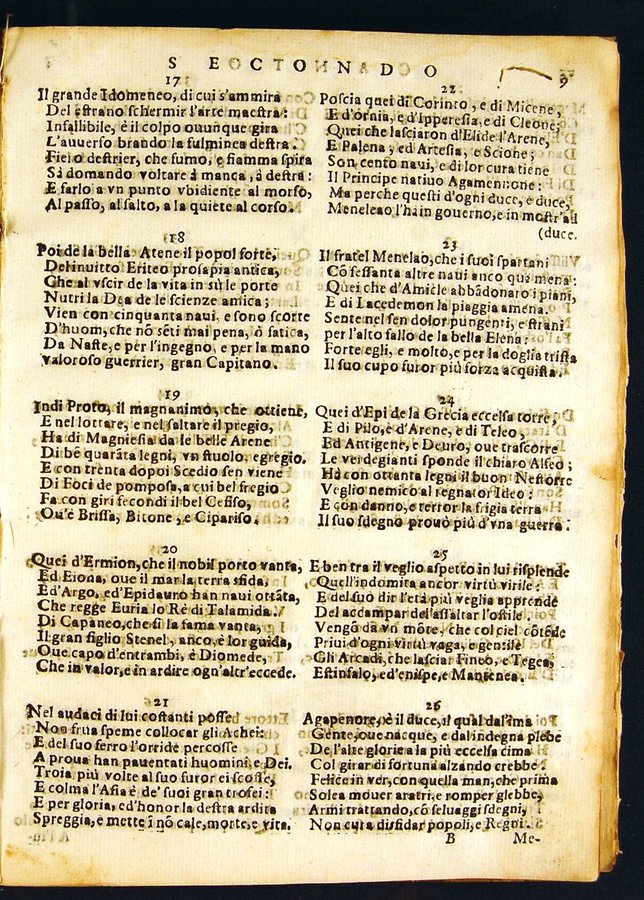 S E C O N D O
9
17
Il grande Idomeneo, di cui s'ammira
Del estrano schermir l'arte maestra:
Infallibile, è il colpo ouunque gira
L'auuerso brando la fulminea destra.
Fiero destrier, che fumo, e fiamma spira
Sà domando voltare à manca, à destra:
E farlo a vn punto vbidiente al morso,
Al passo, al salto, a la quiete al corso.
18
Poi de la bella Atene il popol forte,
Del inuitto Eriteo prosapia antica,
Che al vscir de la vita in sù le porte
Nutri la Dea de le scienze amica;
Vien con cinquanta naui, e sono scorte
D'huom, che nõ sẽti mai pena, ò fatica,
Da Naste, e per l'ingegno, e per la mano
Valoroso guerrier, gran Capitano.
19
Indi Proto, il magnanimo, che ottiene,
E nel lottare, e nel saltare il pregio,
Ha di Magniesia da le belle Arene
Di bẽ quarãta legni, vn stuolo, egregio.
E con trenta dopoi Scedio sen viene
Di Foci de pomposa, a cui bel fregio
Fa con giri fecondi il bel Cefiso,
Ou'è Brissa, Bitone, e Cipariso.
20
Quei d'Ermion, che il nobil porto vanta,
Ed Eiona, oue il mar la terra sfida,
Ed'Argo, ed'Epidauro han naui ottãta,
Che regge Euria lo Rè di Talamida.
Di Capaneo, che sì la fama vanta,
Il gran figlio Stenel, anco, è lor guida,
Oue capo d'entrambi, è Diomede,
Che in valor, e in ardire ogn'altr'eccede.
21
Nel audaci di lui costanti posse
Non frua speme collocar gli Achei:
E del suo ferro l'orride percosse
A proua han pauentati huomini, e Dei.
Troia più volte al suo furor ei scosse,
E colma l'Asia è de' suoi gran trofei:
E per gloria, ed'honor la destra ardita
Spreggia, e mette ĩ nõ cale, morte, e vita.
22
Poscia quei di Corinto, e di Micene,
E d'ornia, e d'Ipperesia, e di Cleone,
Quei che lasciaron d'Elide l'Arene,
E Palena, ed Artesia, e Scione;
Son cento naui, e di lor cura tiene
Il Principe natiuo Agamennone:
Ma perche questi d'ogni duce, e duce,
Menelao l'ha in gouerno, e in mostr'adduce.
23
Il fratel Menelao, che i suoi spartani
Cõ sessanta altre naui anco qui mena:
Quei che d'Amicle abbãdonato i piani,
E di Lacedemon la piaggia amena.
Sente nel sen dolor pungenti, e strani
per l'alto fallo de la bella Elena:
Forte egli, e molto, e per la doglia trista
Il suo cupo furor più forza acquista.
24
Quei d'Epi de la Grecia eccelsa torre,
E di Pilo, e d'Arene, e di Teleo,
Ed Antigene, e Deuro, oue trascorre
Le verdegianti sponde il chiaro Alfeo;
Hà con ottanta legni il buon Nestorre
Veglio nemico al regnator Ideo:
E con danno, e terror la frigia terra
Il suo sdegno prouò più d'vna guerra.
25
E ben tra il veglio aspetto in lui risplende
Quell'indomita ancor virtù virile:
E del suo dir l'età più veglia apprende
Del accampar del'assaltar l'ostile.
Vengõ da vn mõte, che col ciel cõtẽde
Priui d'ogni virtù vaga, e gensile
Gli Arcadi, che lasciar Fineo, e Tegea,
Estinfalo, ed'enispe, e Mantenea.
26
Agapenore, è il duce, il qual da l'ima
Gente, oue nacque, e dal indegna plebe
De l'alte glorie a la più eccelsa cima
Col girar di fortuna alzando crebbe.
Felice in ver, con quella man, che prima
Solea mouer aratri, e romper glebbe,
Armi trattando, cõ seluaggi sdegni,
Non cura disfidar popoli, e Regni.
B
Me-